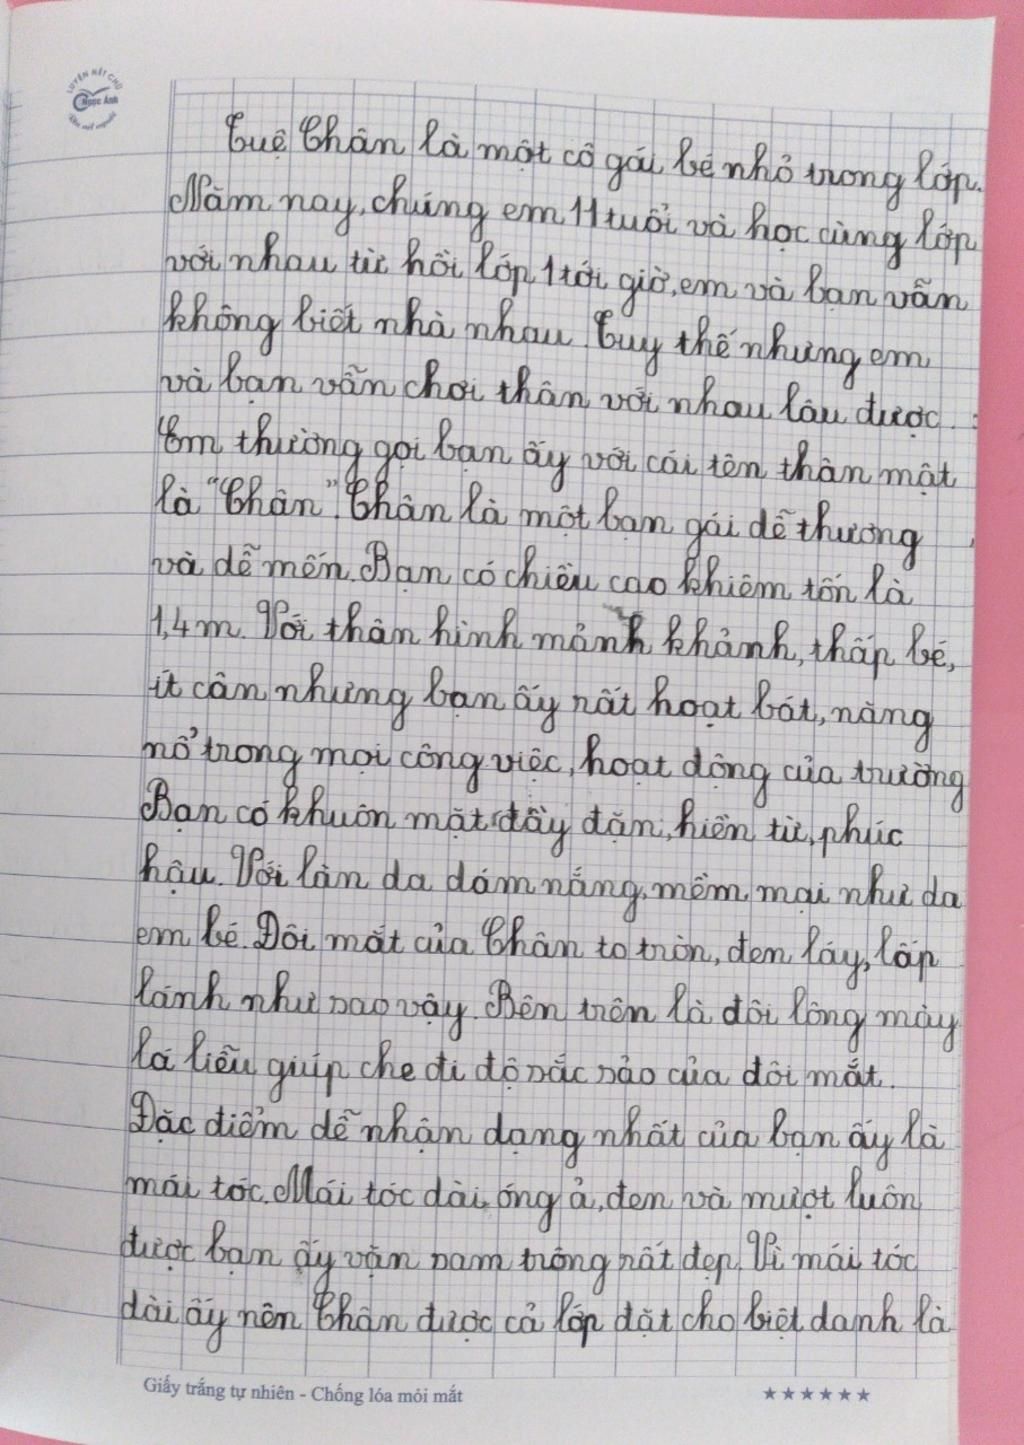 LUYỆN NÉT CHỮ
Ngọc Ánh
Tuệ Chân là một cô gái bé nhỏ trong lớp.
Năm nay, chúng em 11 tuổi và học cùng lớp
với nhau từ hồi lớp 1 tới giờ, em và bạn vẫn
không biết nhà nhau. Tuy thế nhưng em
và bạn vẫn chơi thân với nhau lâu được.
Em thường gọi bạn ấy với cái tên thân mật
là "Chân". Chân là một bạn gái dễ thương
và dễ mến. Bạn có chiều cao khiêm tốn là
1,4m. Với thân hình mảnh khảnh, thấp bé,
ít cân nhưng bạn ấy rất hoạt bát, năng
nổ trong mọi công việc, hoạt động của trường
Bạn có khuôn mặt đầy đặn, hiền từ, phúc
hậu. Với làn da dám nắng, mềm mại như da
em bé. Đôi mắt của Chân to tròn, đen láy, lấp
lánh như sao vậy. Bên trên là đôi lông mày
lá liễu giúp che đi độ sắc sảo của đôi mắt.
Đặc điểm dễ nhận dạng nhất của bạn ấy là
mái tóc. Mái tóc dài, óng ả, đen và mượt luôn
được bạn ấy vặn sam trông rất đẹp. Vì mái tóc
dài ấy nên Chân được cả lớp đặt cho biệt danh là
Giấy trắng tự nhiên - Chống lóa mỏi mắt